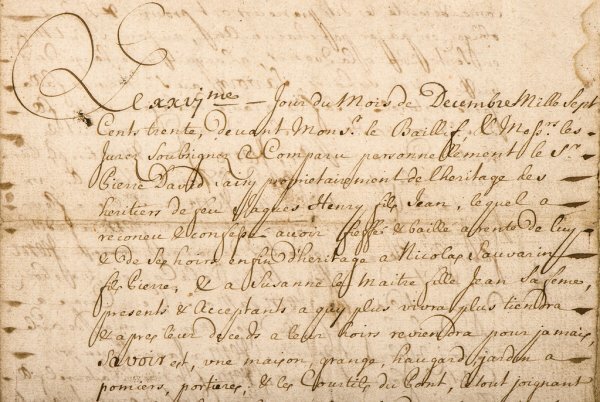 Le xxvjme Jour du Mois de Decembre Mille Sept
Cents trente, devant Monsr. le Baillif, & Messrs. les
Jurez Soubsignez Est Comparu personnellement le Sr.
Pierre David proprietairement de l'heritage des
heritiers de feu Jaques Henry fils Jean; lequel a
reconeu & confessé avoir fieffé & baille a rente de luy
& de Ses hoirs enfin d'heritage a Nicolas Sauvarin
fils Pierre, & a Susanne le Maitre fille Jean Sa feme,
presents & Acceptants a quy plus vivra plus tiendra
& apres leur deceds a leur hoirs reviendra pour jamais,
Savoir est, une maison, grange, haugard jardin a
pomiers, portieres, & les Courtils du Pont, le tout joignant